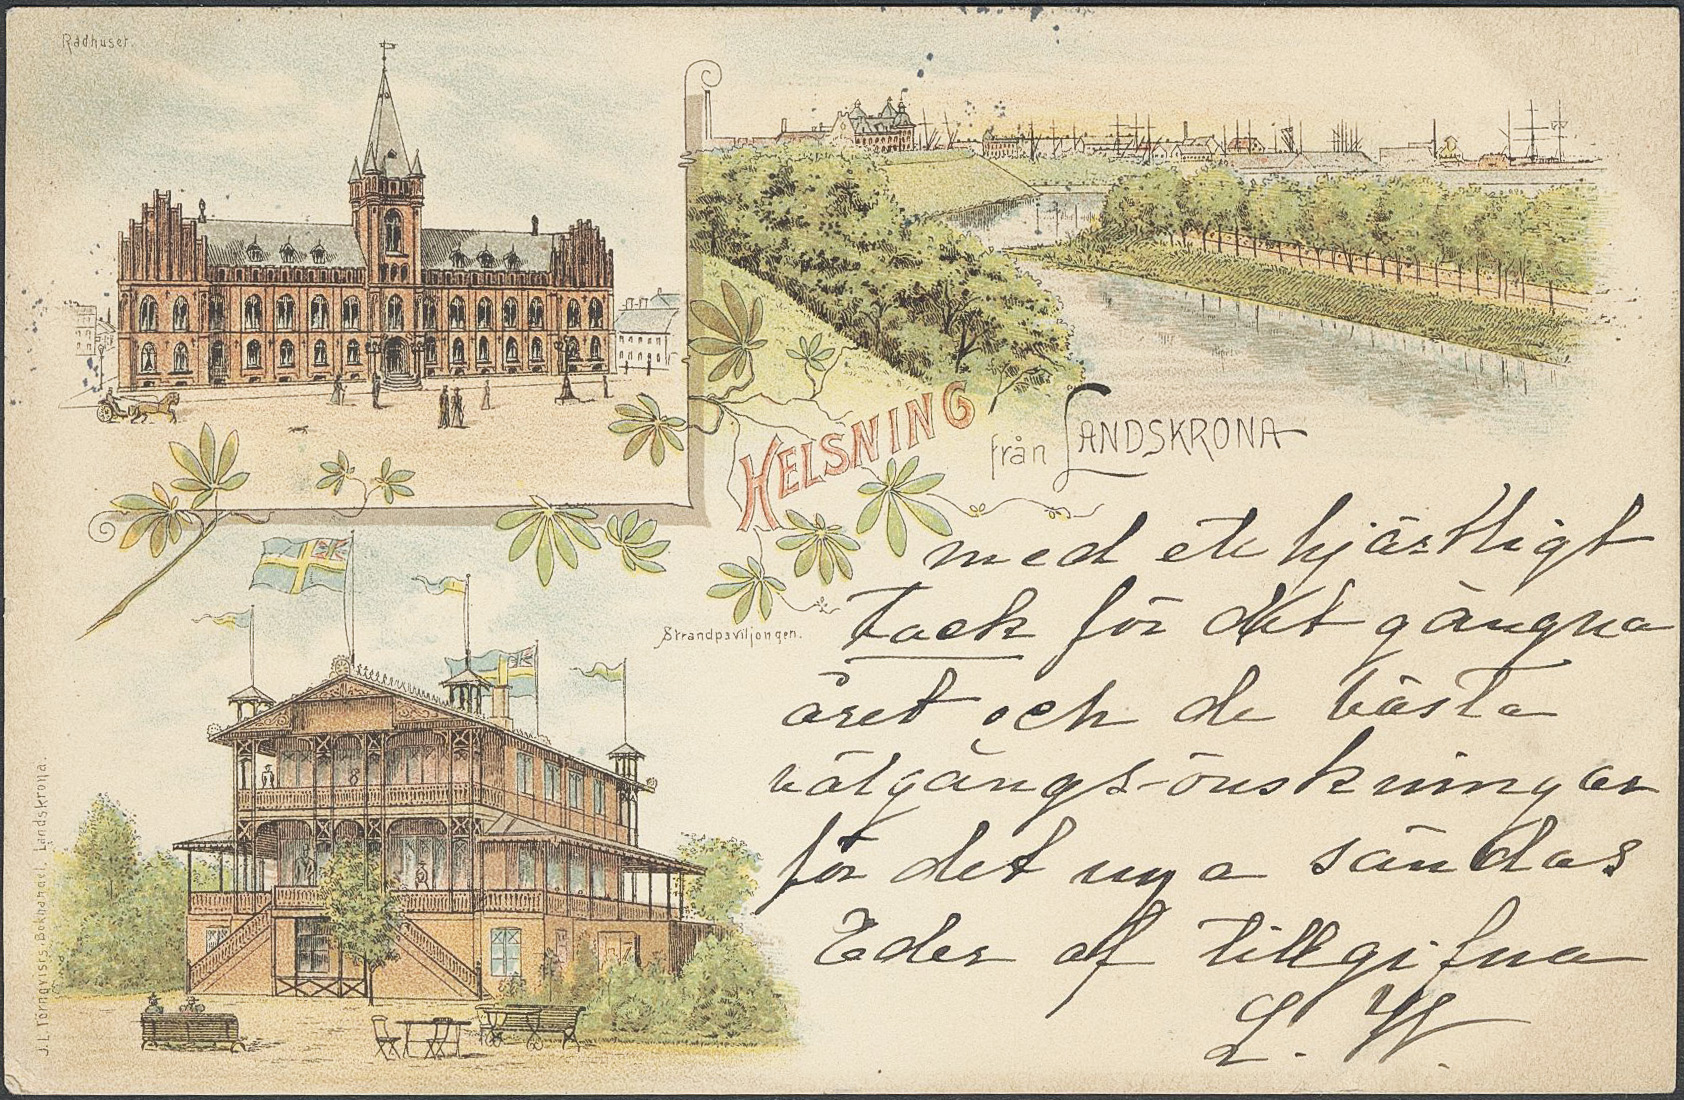 Rådhuset.
HELSNING från LANDSKRONA
Strandpaviljongen.
med ett hjärtligt
tack för det gångna
året och de bästa
välgångs-önskningar
för det nya sändas
Eder af tillgifna
L. W.
J. L. Törnqvists Bokhandel. Landskrona.